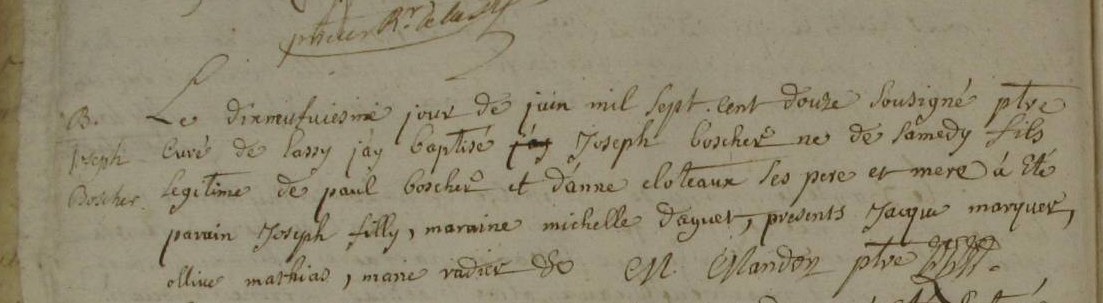 Rr. de lassy
B. Le dixneufuiesme jour de juin mil sept. cent douze Sousigné ptre
Joseph Curé de lassy j'ay baptisé j'ay Joseph boscher ne de Samedy fils
Boscher. legitime de paul boscher et d'anne cloteaux Ses pere et mere á Eté
parain Joseph filly, maraine michelle daguet, presents Jacque marquer,
ollive mathias, marie radier &c M. Mandon ptre